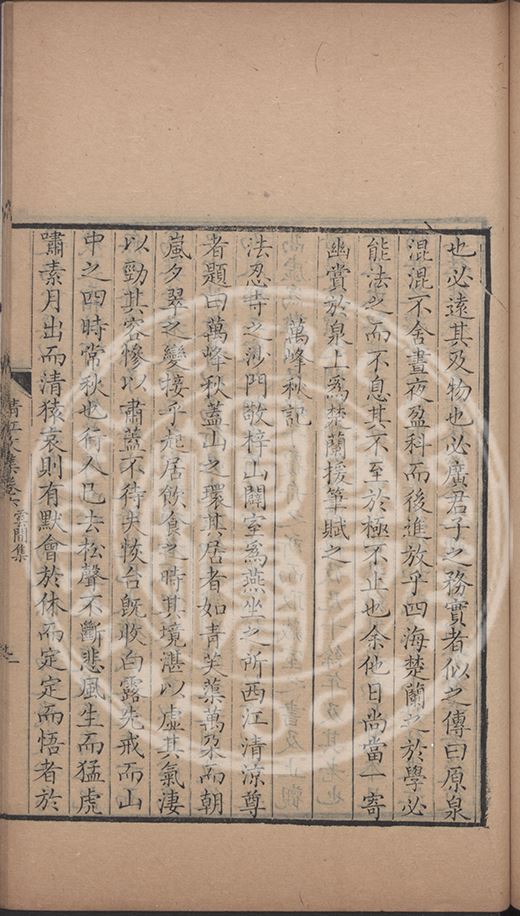 也必遠其及物也必廣君子之務實者似之傳曰原泉
混混不舍晝夜盈科而後進放乎四海楚蘭之於學必
能法之而不息其不至於極不止也余他日尚當一寄
幽賞於泉上爲楚蘭援筆賦之
萬峰秋記
法忍寺之沙門敬梓山闢室爲燕坐之所西江清涼尊
者題曰萬峰秋蓋山之環其居者如青芙蕖萬朶而朝
嵐夕翠之變接乎起居飲食之時其境湛以虛其氣淒
以勁其容慘以肅蓋不待夫恢台既收白露先戒而山
中之四時常秋也行人已去松聲不斷悲風生而猛虎
嘯素月出而清猿哀則有默會於休而定定而悟者於
清江文集卷 雲間集